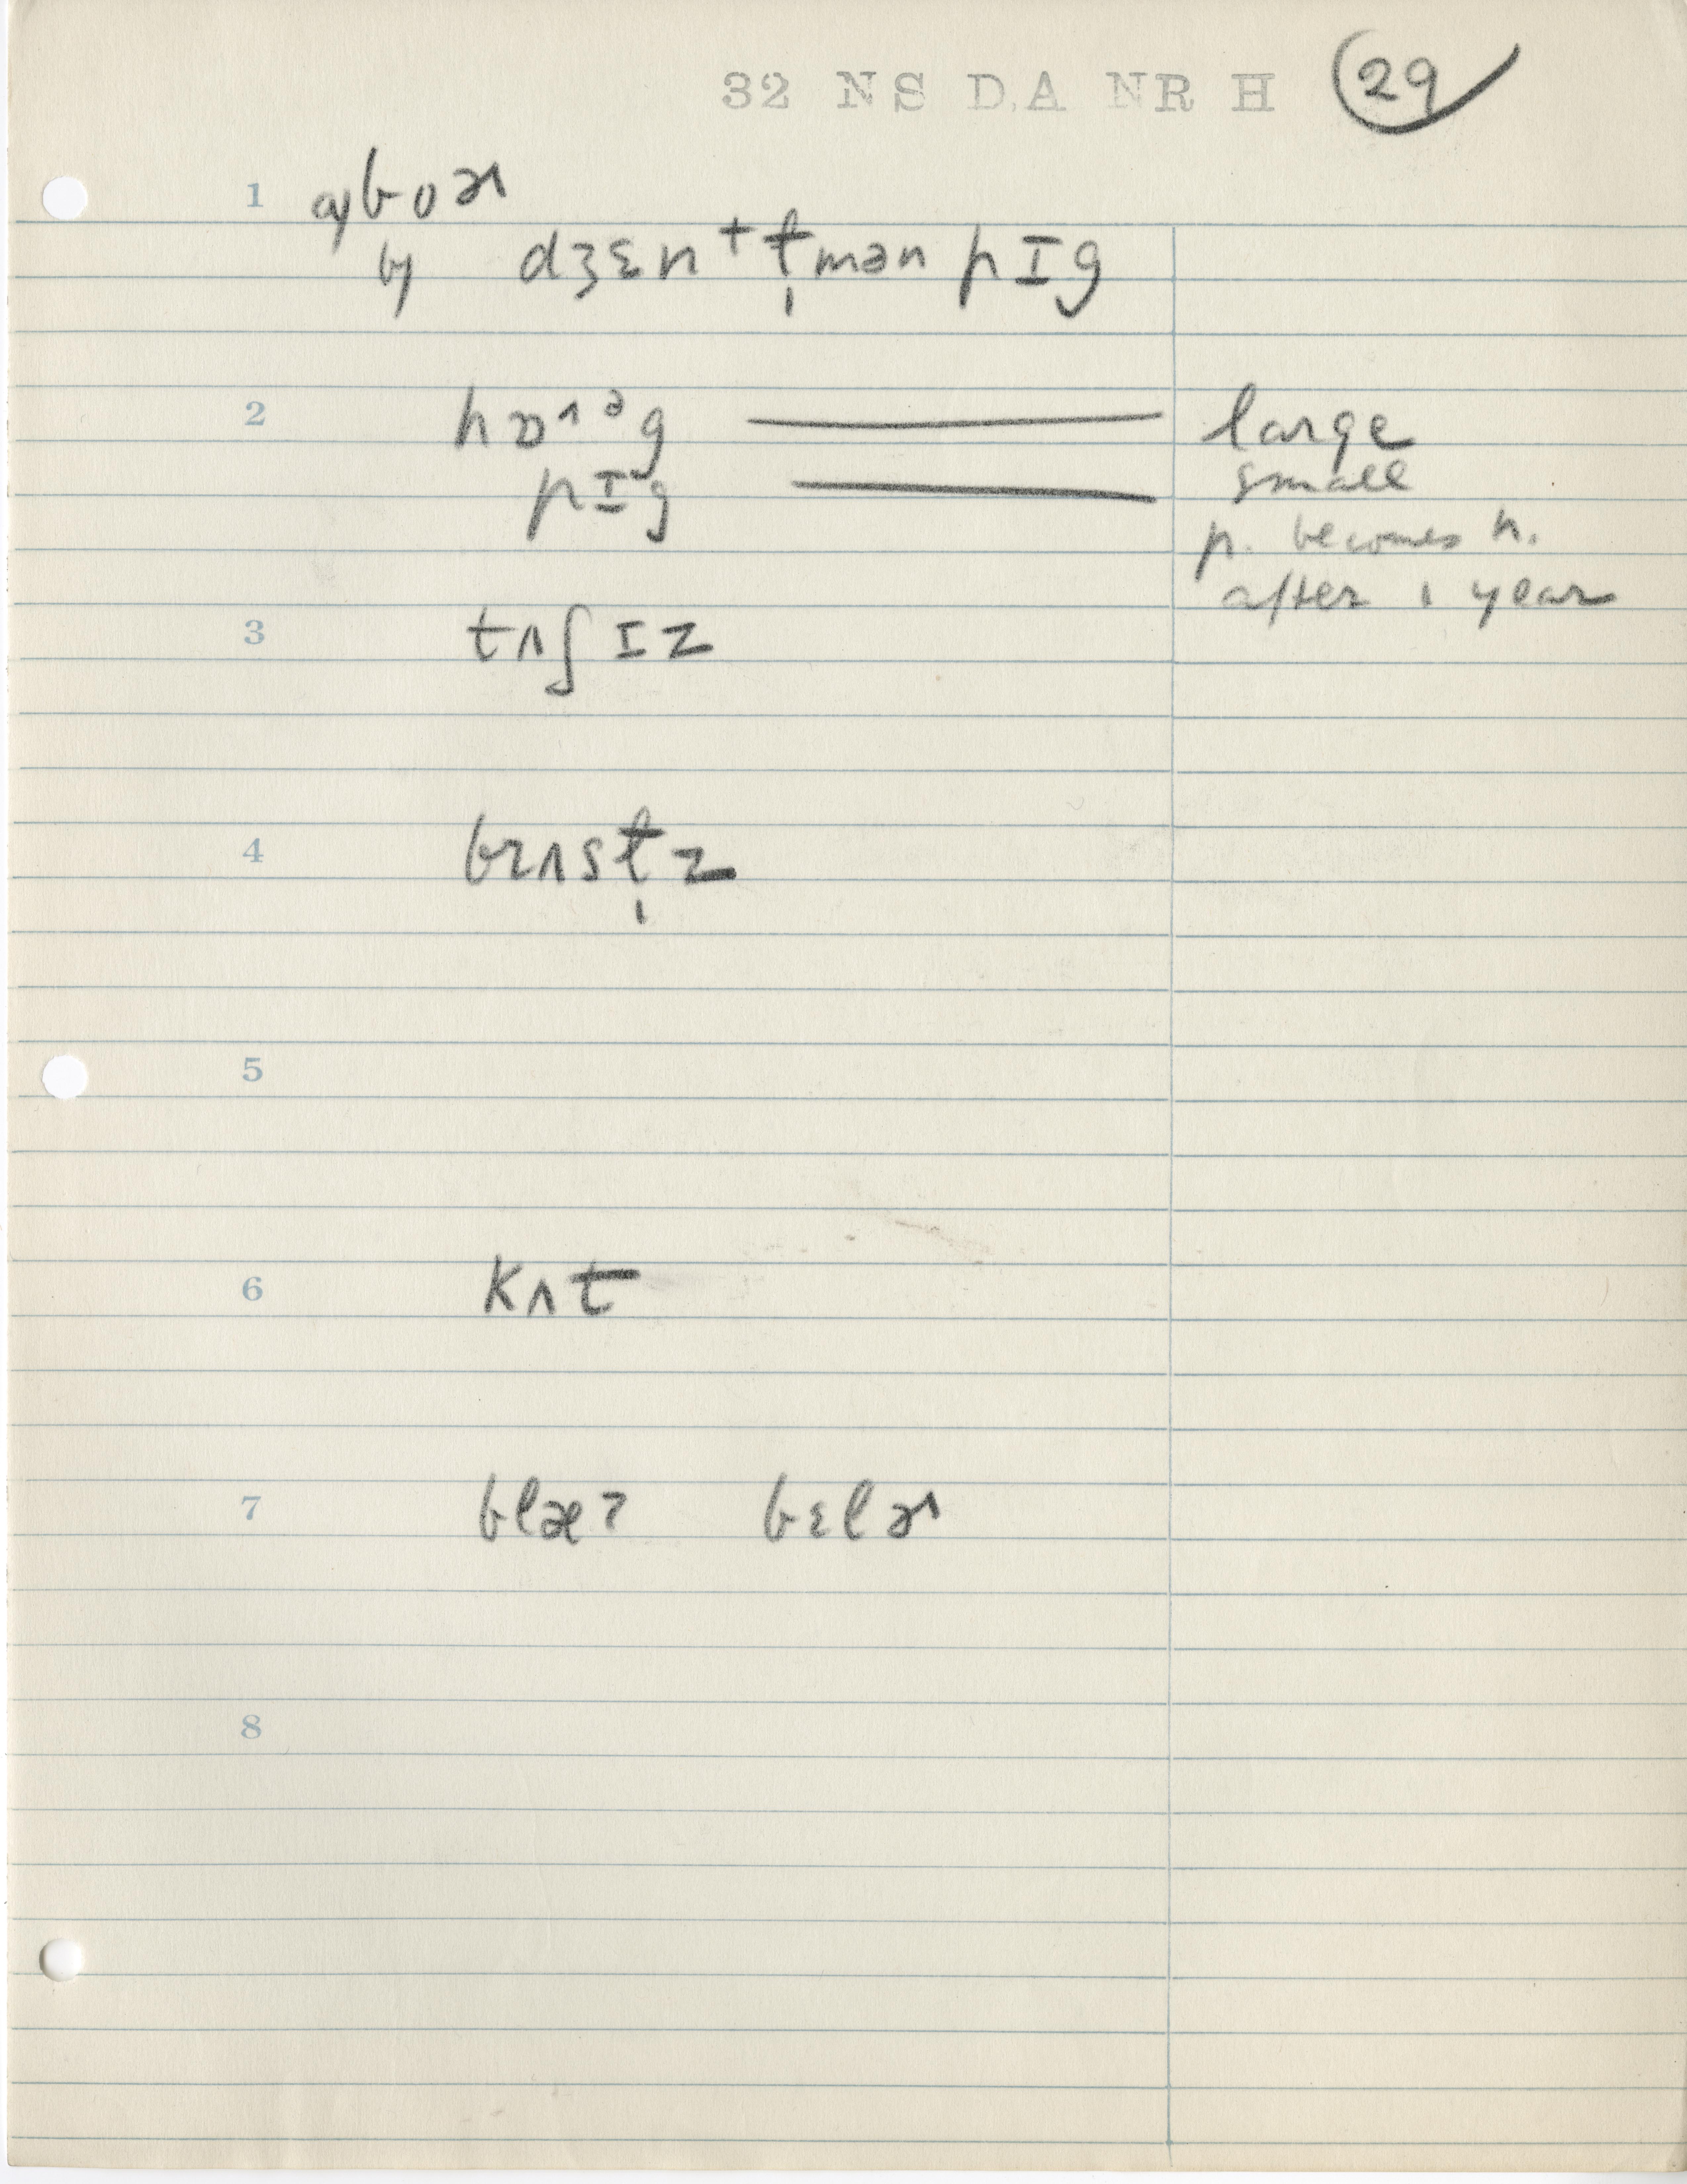 32 NS DA NR H 29
1 a) boɚ
b) dʒɛn⁺t̩mən pɪg
2 hɒ˄ᵊg —— large
pɪg —— small
p. becomes h.
after 1 year
3 tʌʃɪz
4 bɹʌst̩z
5
6 kʌt
7 blæʔ bɛlɚ
8